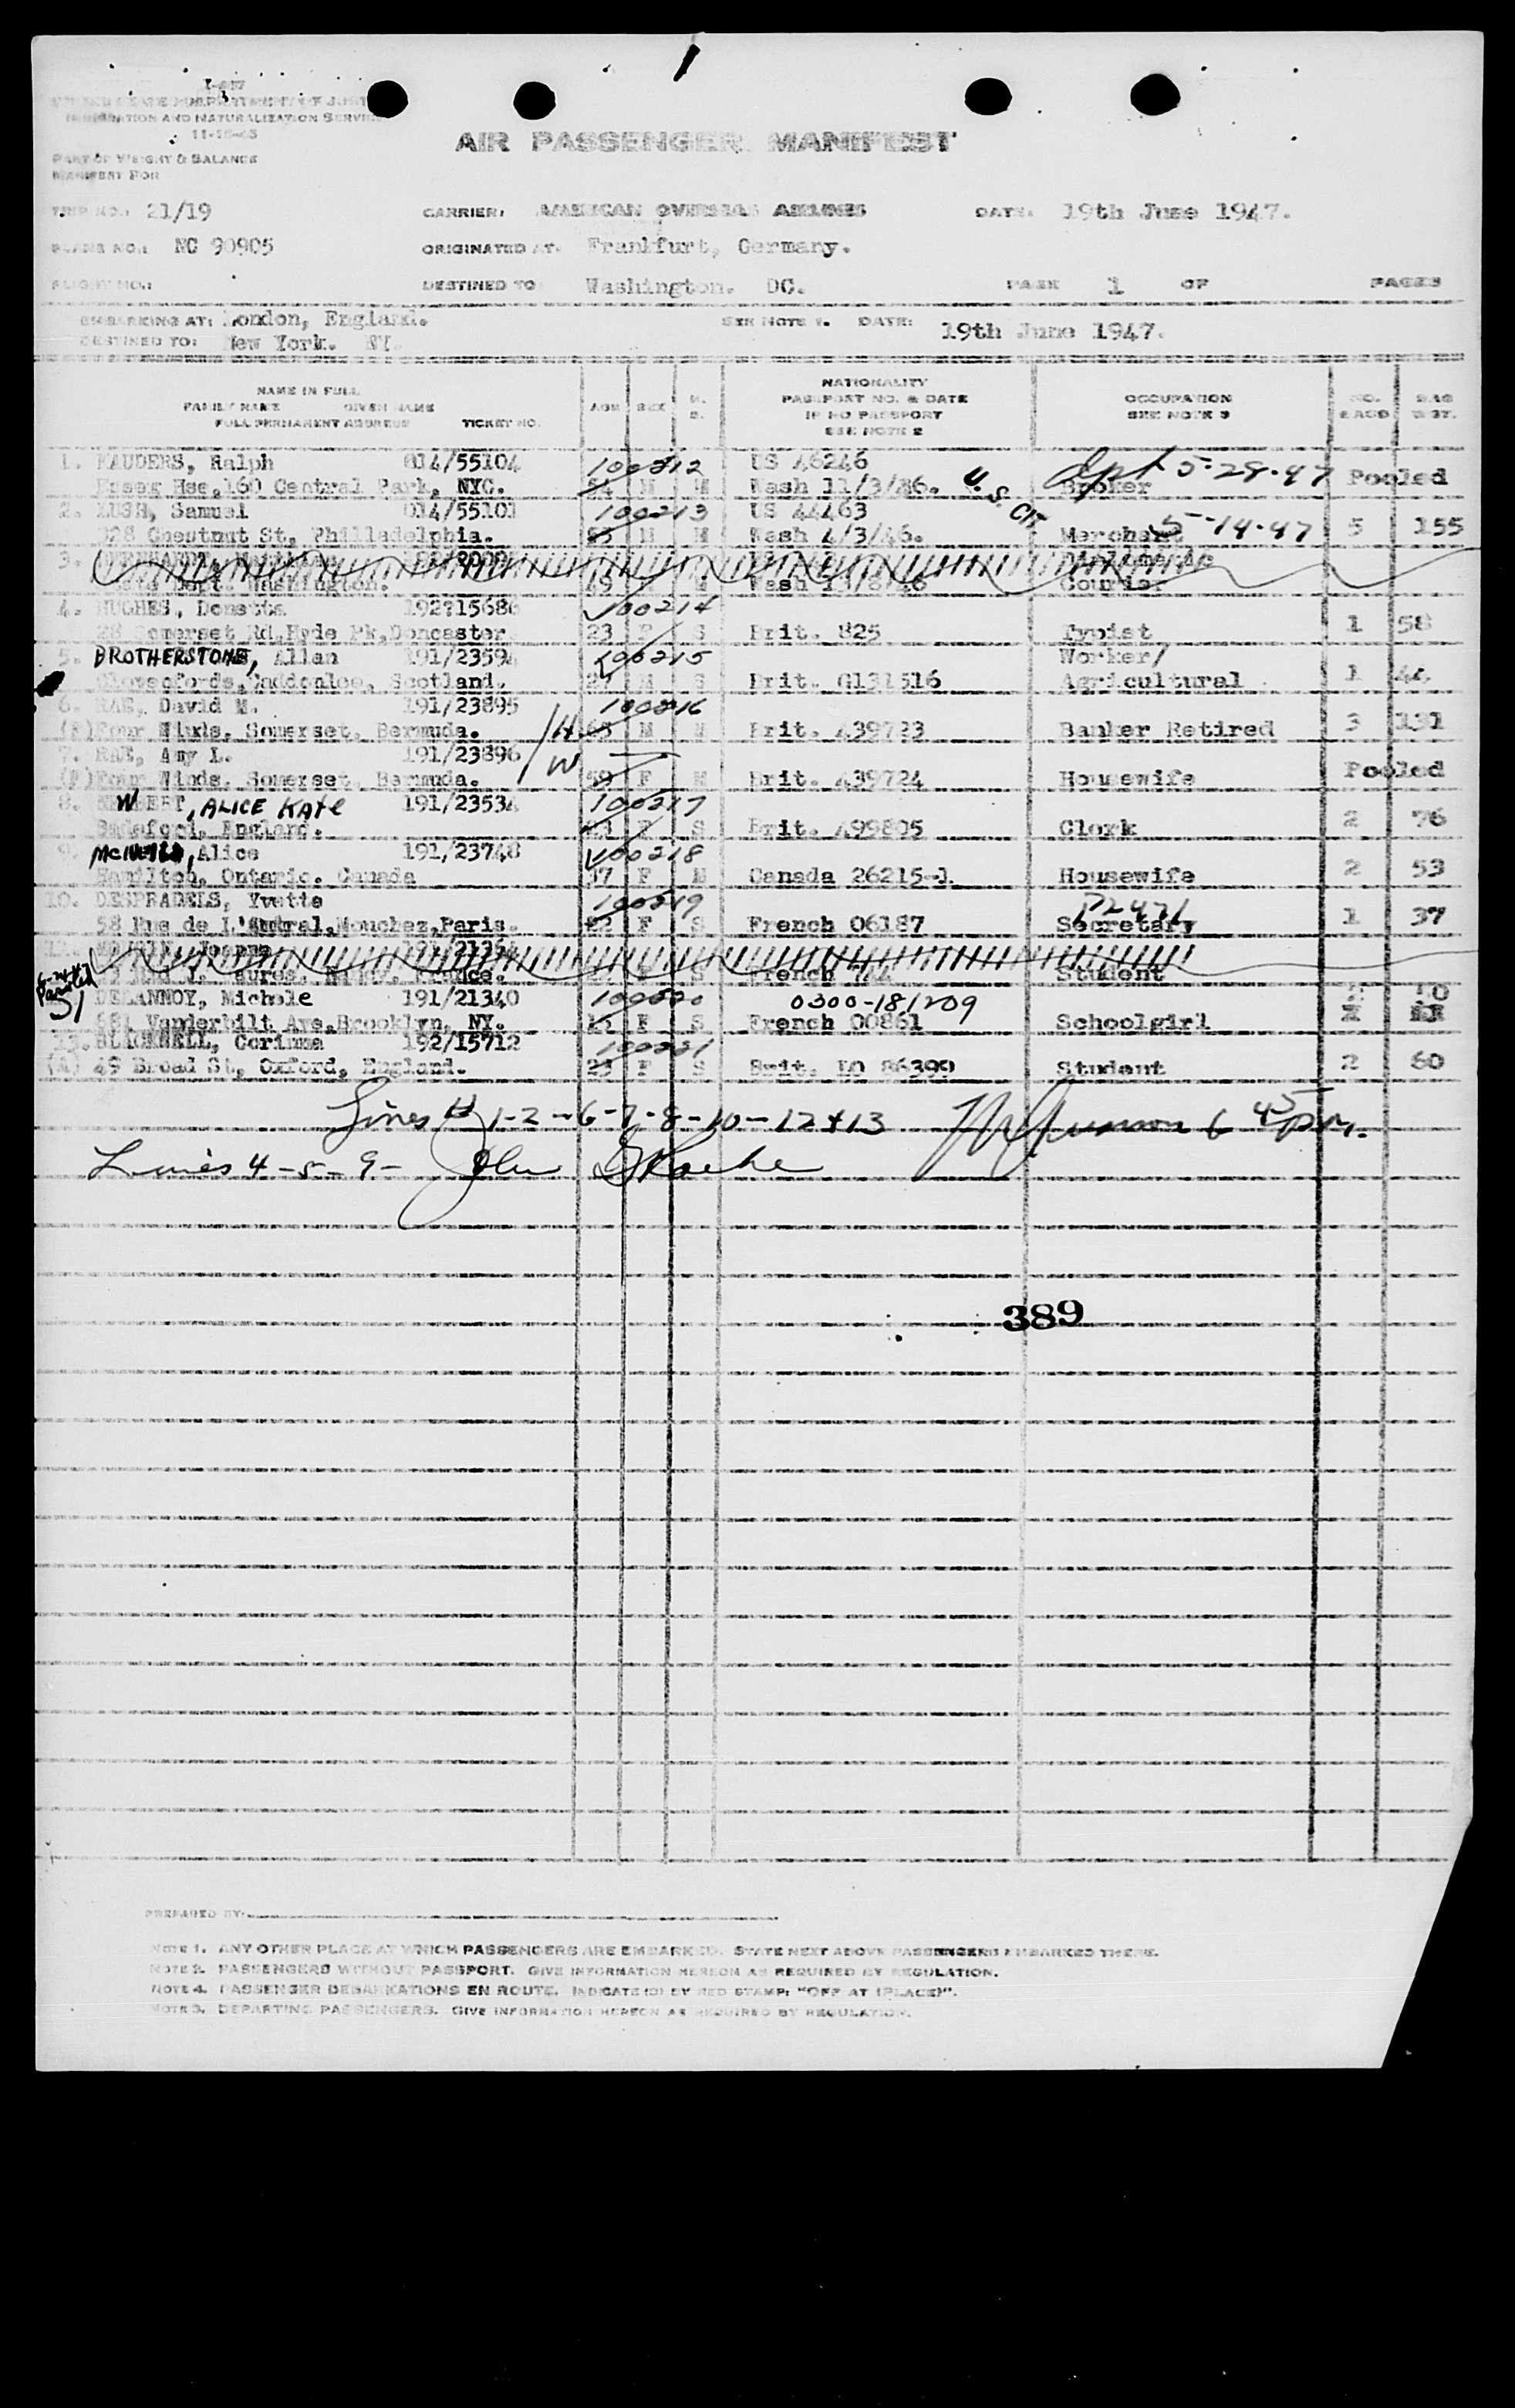 I-467
UNITED STATES DEPARTMENT OF JUSTICE
IMMIGRATION AND NATURALIZATION SERVICE
PART OF WEIGHT & BALANCE
MANIFEST FOR
AIR PASSENGER MANIFEST
TRIP NO.: 21/19 CARRIER: AMERICAN OVERSEAS AIRLINES DATE: 19th June 1947.
PLANE NO.: NC 90905 ORIGINATED AT: Frankfurt, Germany.
FLIGHT NO.: DESTINED TO Washington. DC. PAGE 1 OF PAGES
EMBARKING AT: London, England. SEE NOTE 1. DATE: 19th June 1947.
DESTINED TO: New York. NY.
NAME IN FULL
FAMILY NAME GIVEN NAME
FULL PERMANENT ADDRESS TICKET NO.
AGE SEX M. S.
NATIONALITY
PASSPORT NO. & DATE
IF NO PASSPORT
SEE NOTE 2
OCCUPATION
SEE NOTE 3
NO. BAGS BAG WGT.
1. KAUDERS, Ralph 014/55104 100212 US 46246 5-28-47
Essex Hse, 160 Central Park, NYC. 54 M M Wash 11/3/86. U.S. CIT Broker Pooled
2. Samuel 014/55101 100213 US 44463
Chestnut St, Philladelphia. M M Wash 4/3/46. Merchant 5-14-47 5 155
3.
Washington. 49 M Wash Courier
4. HUGHES, 100214
28 Somerset Rd, Hyde Pk, Doncaster 23 F S Brit. 825 Typist 1 58
5. BROTHERSTONE, Allan 191/2359 100215 Worker/
Scotland. 27 M S Brit. G131516 Agricultural 1 44
6. RAE, David M. 191/23895 100216
(F) Four Winds. Somerset, Bermuda. H 65 M M Brit. A39723 Banker Retired 3 131
7. RAE, Amy L. 191/23896
(F) Four Winds. Somerset, Bermuda. W 59 F M Brit. A39724 Housewife Pooled
8. W , ALICE KATE 191/2353 100217
England. F S Brit. A99805 Clerk 2 76
9. Alice 191/23748 100218
Hamilton, Ontario. Canada 37 F M Canada 26215-J. Housewife 2 53
10. DESPRADELS, Yvette 100219
58 Rue de L'Amiral, Mouchez, Paris. 22 F S French 06187 Secretary 1 37
S French Student
6-24-47 Paroled
51
DELANNOY, Michele 191/21340 100220 0300-181209 10
681 Vanderbilt Ave, Brooklyn, NY. 15 F S French 00861 Schoolgirl
13. BLICKNELL, Corinna 192/15712 100221
(A) 49 Broad St, Oxford, England. 23 F S Brit. LO 86399 Student 2 60
Lines 1-2-6-7-8-10-12+13 6 45 p.m.
Lines 4-5-9- John
389
PREPARED BY:
NOTE 1. ANY OTHER PLACE AT WHICH PASSENGERS ARE EMBARKED. STATE NEXT ABOVE PASSENGERS EMBARKED THERE.
NOTE 2. PASSENGERS WITHOUT PASSPORT. GIVE INFORMATION HEREON AS REQUIRED BY REGULATION.
NOTE 4. PASSENGER DEBARKATIONS EN ROUTE. INDICATE (D) BY RED STAMP: "OFF AT (PLACE)".
NOTE 3. DEPARTING PASSENGERS. GIVE INFORMATION HEREON AS REQUIRED BY REGULATION.